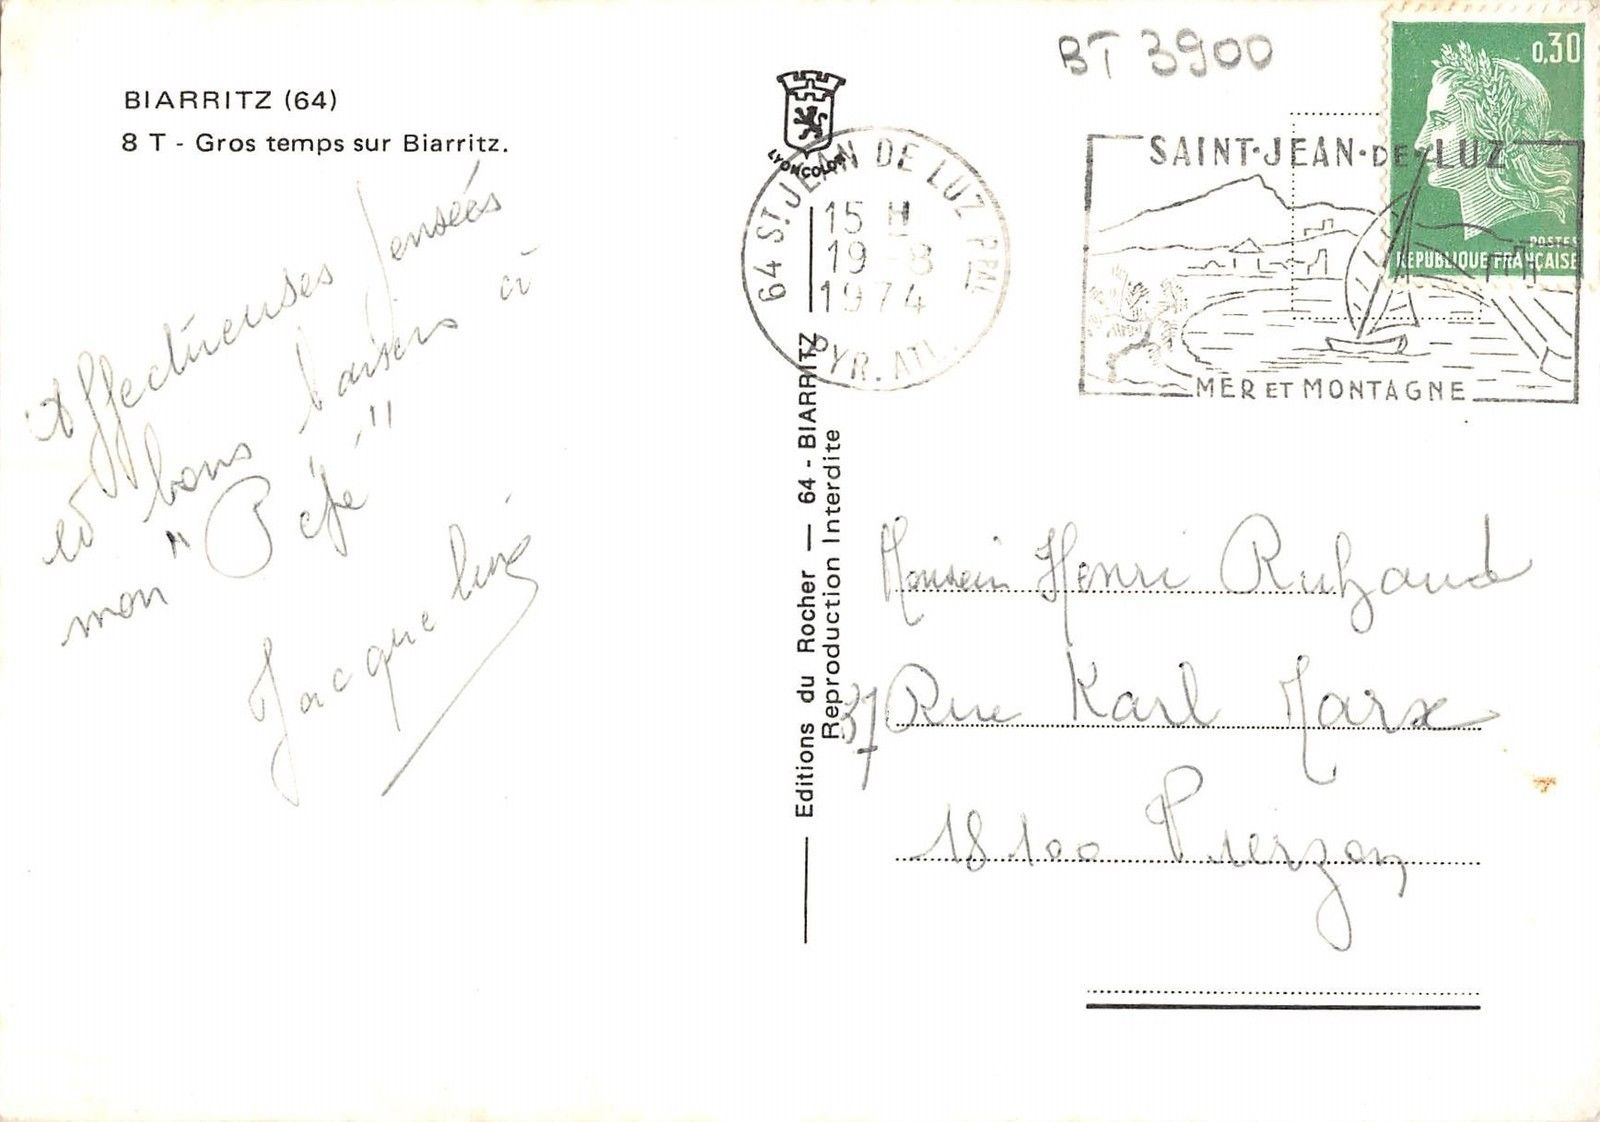 BIARRITZ (64)
8 T - Gros temps sur Biarritz.
Affectueuses pensées
et bons baisers à
mon "Pépé"
Jacqueline
LYONCOLOR
Editions du Rocher — 64 - BIARRITZ
Reproduction Interdite
BT 3900
64 ST JEAN DE LUZ PPAL
15 H
19 -8
1974
PYR. ATL.
SAINT·JEAN·DE·LUZ
MER ET MONTAGNE
0,30
POSTES
REPUBLIQUE FRANÇAISE
Monsieur Henri
37 Rue Karl Marx
18100 Vierzon